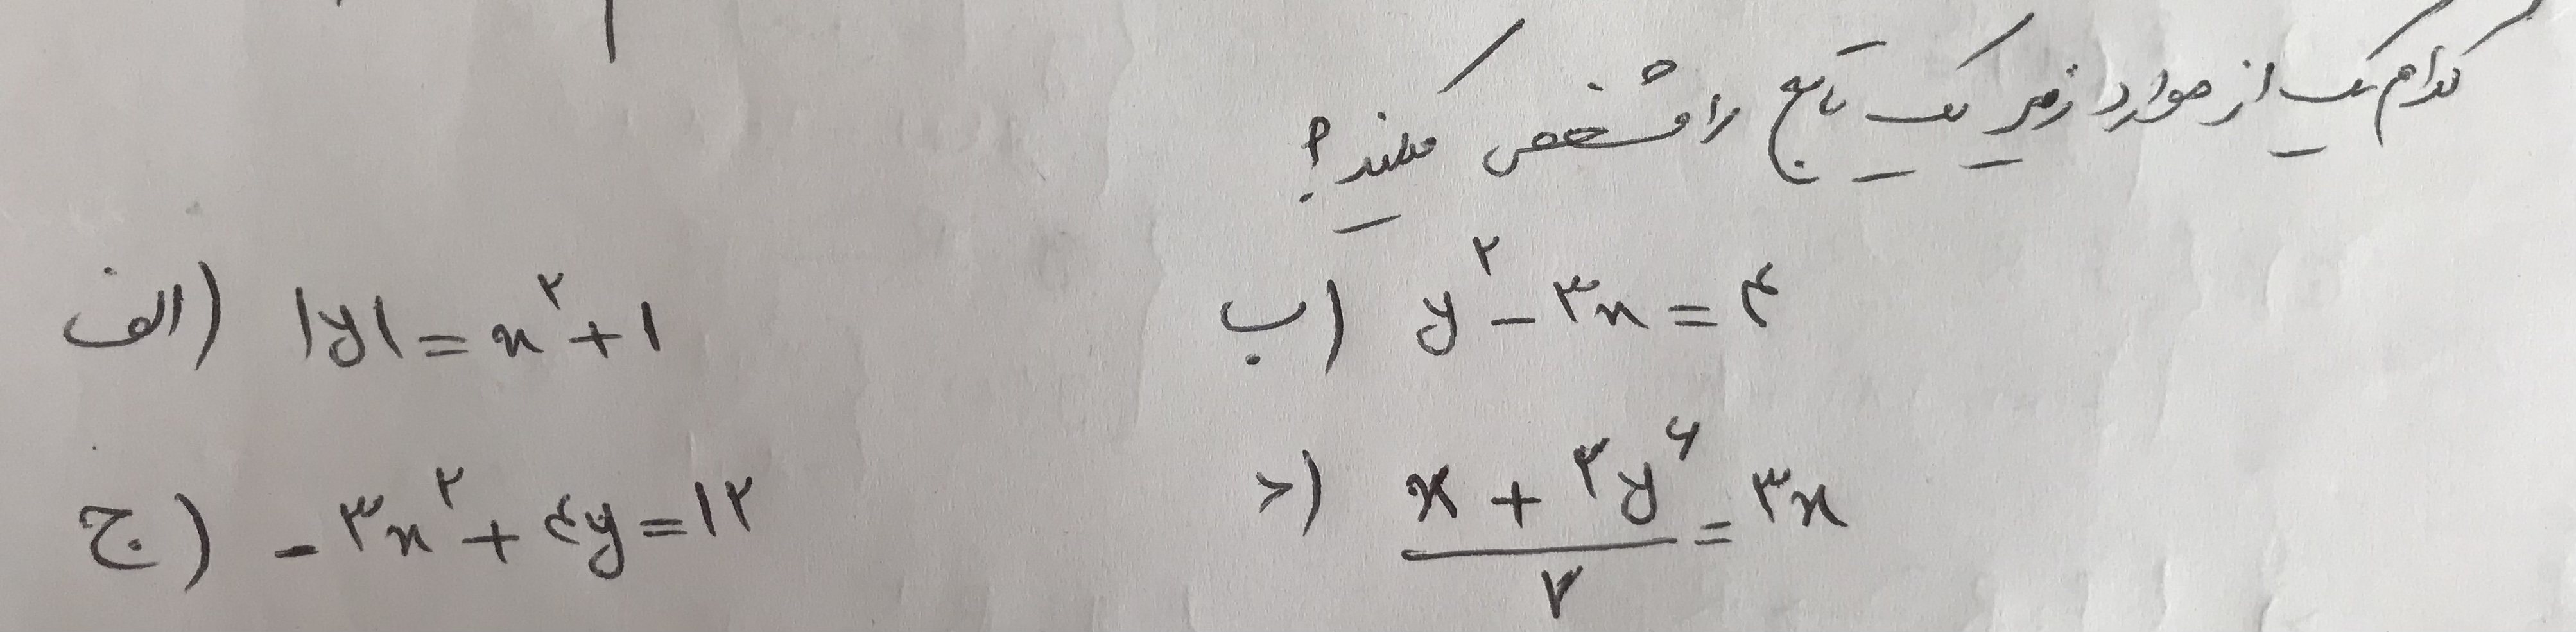 کدام یک از موارد زیر یک تابع را مشخص میکند؟
الف) |y| = x^۲ + ۱
ب) y^۲ - ۳x = ۴
ج) -۳x^۲ + ۴y = ۱۲
د) (x + ۳y^۶)/۷ = ۳x